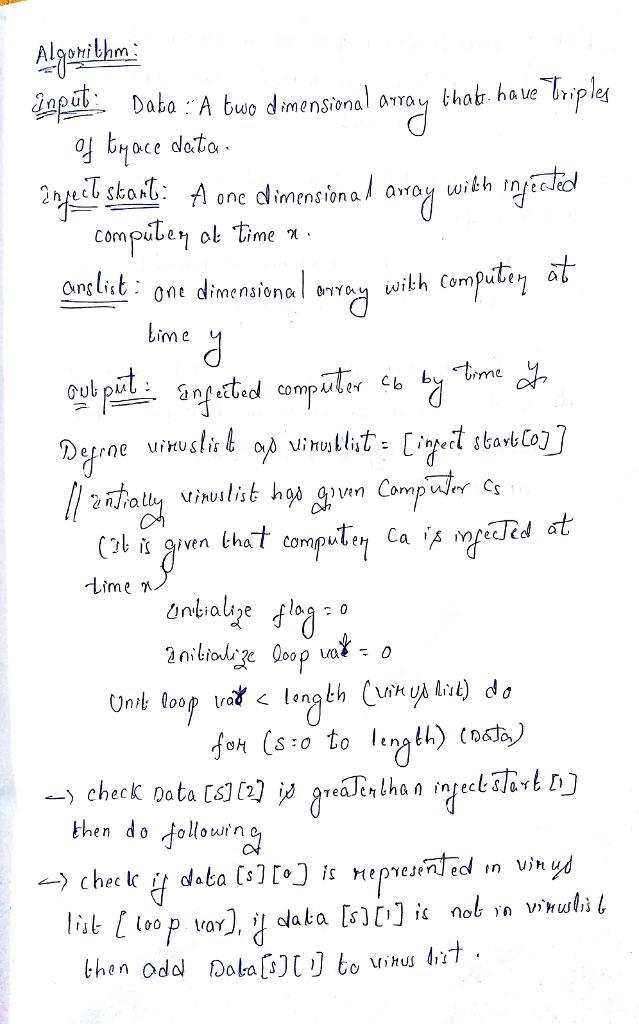 Algorithm:
Input: Data : A two dimensional array that have Triples
of trace data.
Infect start: A one dimensional array with infected
computer at time x.
anslist : one dimensional array with computer at
time y
output : Infected computer cb by time y
Define viruslist as viruslist = [infect start[0]]
// intially viruslist has given Computer Cs
(It is given that computer Ca is infected at
time x)
Initialize flag = 0
Initialize loop var = 0
Until loop var < length (virus list) do
for (s=0 to length) (Data)
-> check Data [S][2] is greaterthan infectstart [1]
then do following
-> check if data [s][0] is represented in virus
list [loop var], if data [s][1] is not in viruslist
then add Data[s][1] to virus list.